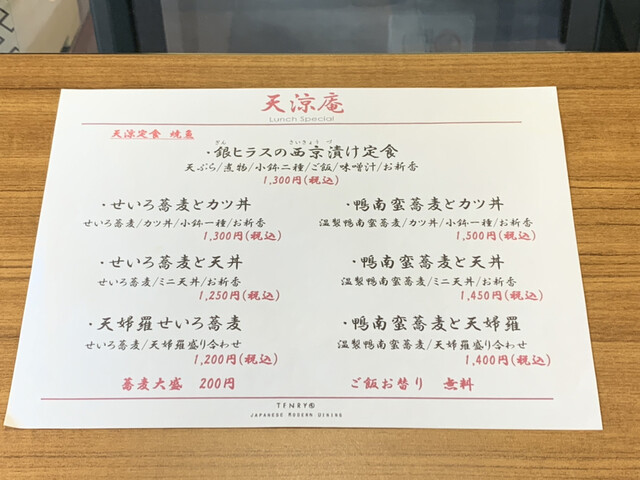 天涼庵
Lunch Special
天涼定食 焼魚
・銀ヒラスの西京漬け定食
ぎん さいきょう づ
天ぷら/煮物/小鉢二種/ご飯/味噌汁/お新香
1,300円(税込)
・せいろ蕎麦とカツ丼
せいろ蕎麦/カツ丼/小鉢一種/お新香
1,300円(税込)
・鴨南蛮蕎麦とカツ丼
温製鴨南蛮蕎麦/カツ丼/小鉢一種/お新香
1,500円(税込)
・せいろ蕎麦と天丼
せいろ蕎麦/ミニ天丼/お新香
1,250円(税込)
・鴨南蛮蕎麦と天丼
温製鴨南蛮蕎麦/ミニ天丼/お新香
1,450円(税込)
・天婦羅せいろ蕎麦
せいろ蕎麦/天婦羅盛り合わせ
1,200円(税込)
・鴨南蛮蕎麦と天婦羅
温製鴨南蛮蕎麦/天婦羅盛り合わせ
1,400円(税込)
蕎麦大盛 200円
ご飯お替り 無料
JAPANESE MODERN DINING